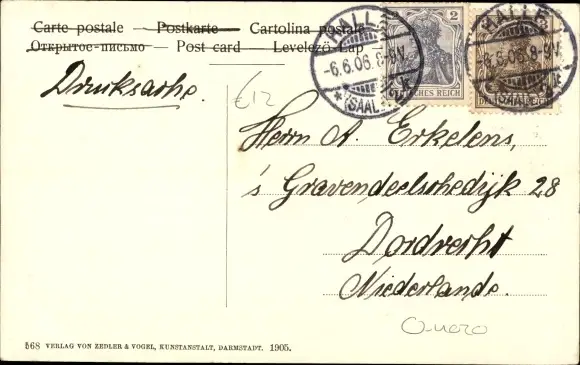 Carte postale — Postkarte — Cartolina postale
Открытое-письмо — Post card — Levelező-Lap
HALLE
6.6.06. 8-9V.
(SAALE)
2
DEUTSCHES REICH
HALLE
6.6.06. 8-9V.
(SAALE)
Drucksache.
€12
Herrn A. Erkelens,
's Gravendeelschedijk 28
Dordrecht
Niederlande.
568 VERLAG VON ZEDLER & VOGEL, KUNSTANSTALT, DARMSTADT. 1905.